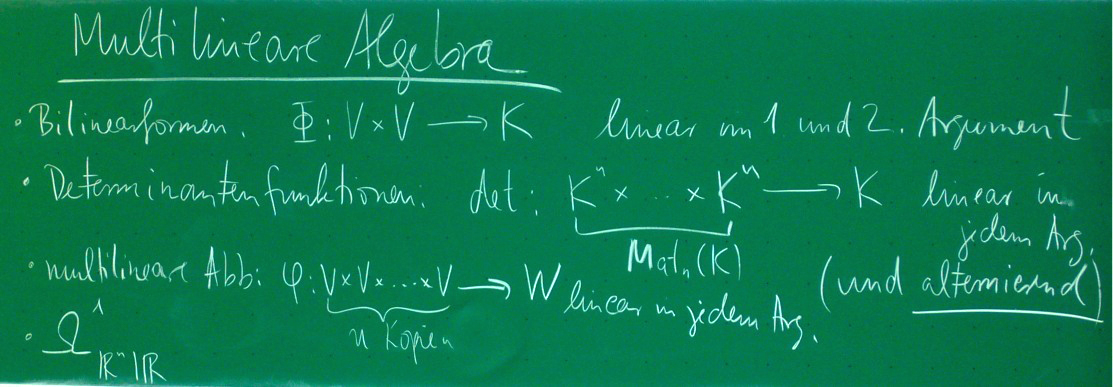 Multilineare Algebra
• Bilinearformen. Φ: V × V → K linear im 1 und 2. Argument
• Determinantenfunktionen: det: Kⁿ × ... × Kⁿ → K linear in jedem Arg.
Matₙ(K)
(und alternierend)
• multilineare Abb: φ: V×V×...×V → W linear in jedem Arg.
n Kopien
• Ω¹ ℝⁿ|ℝ